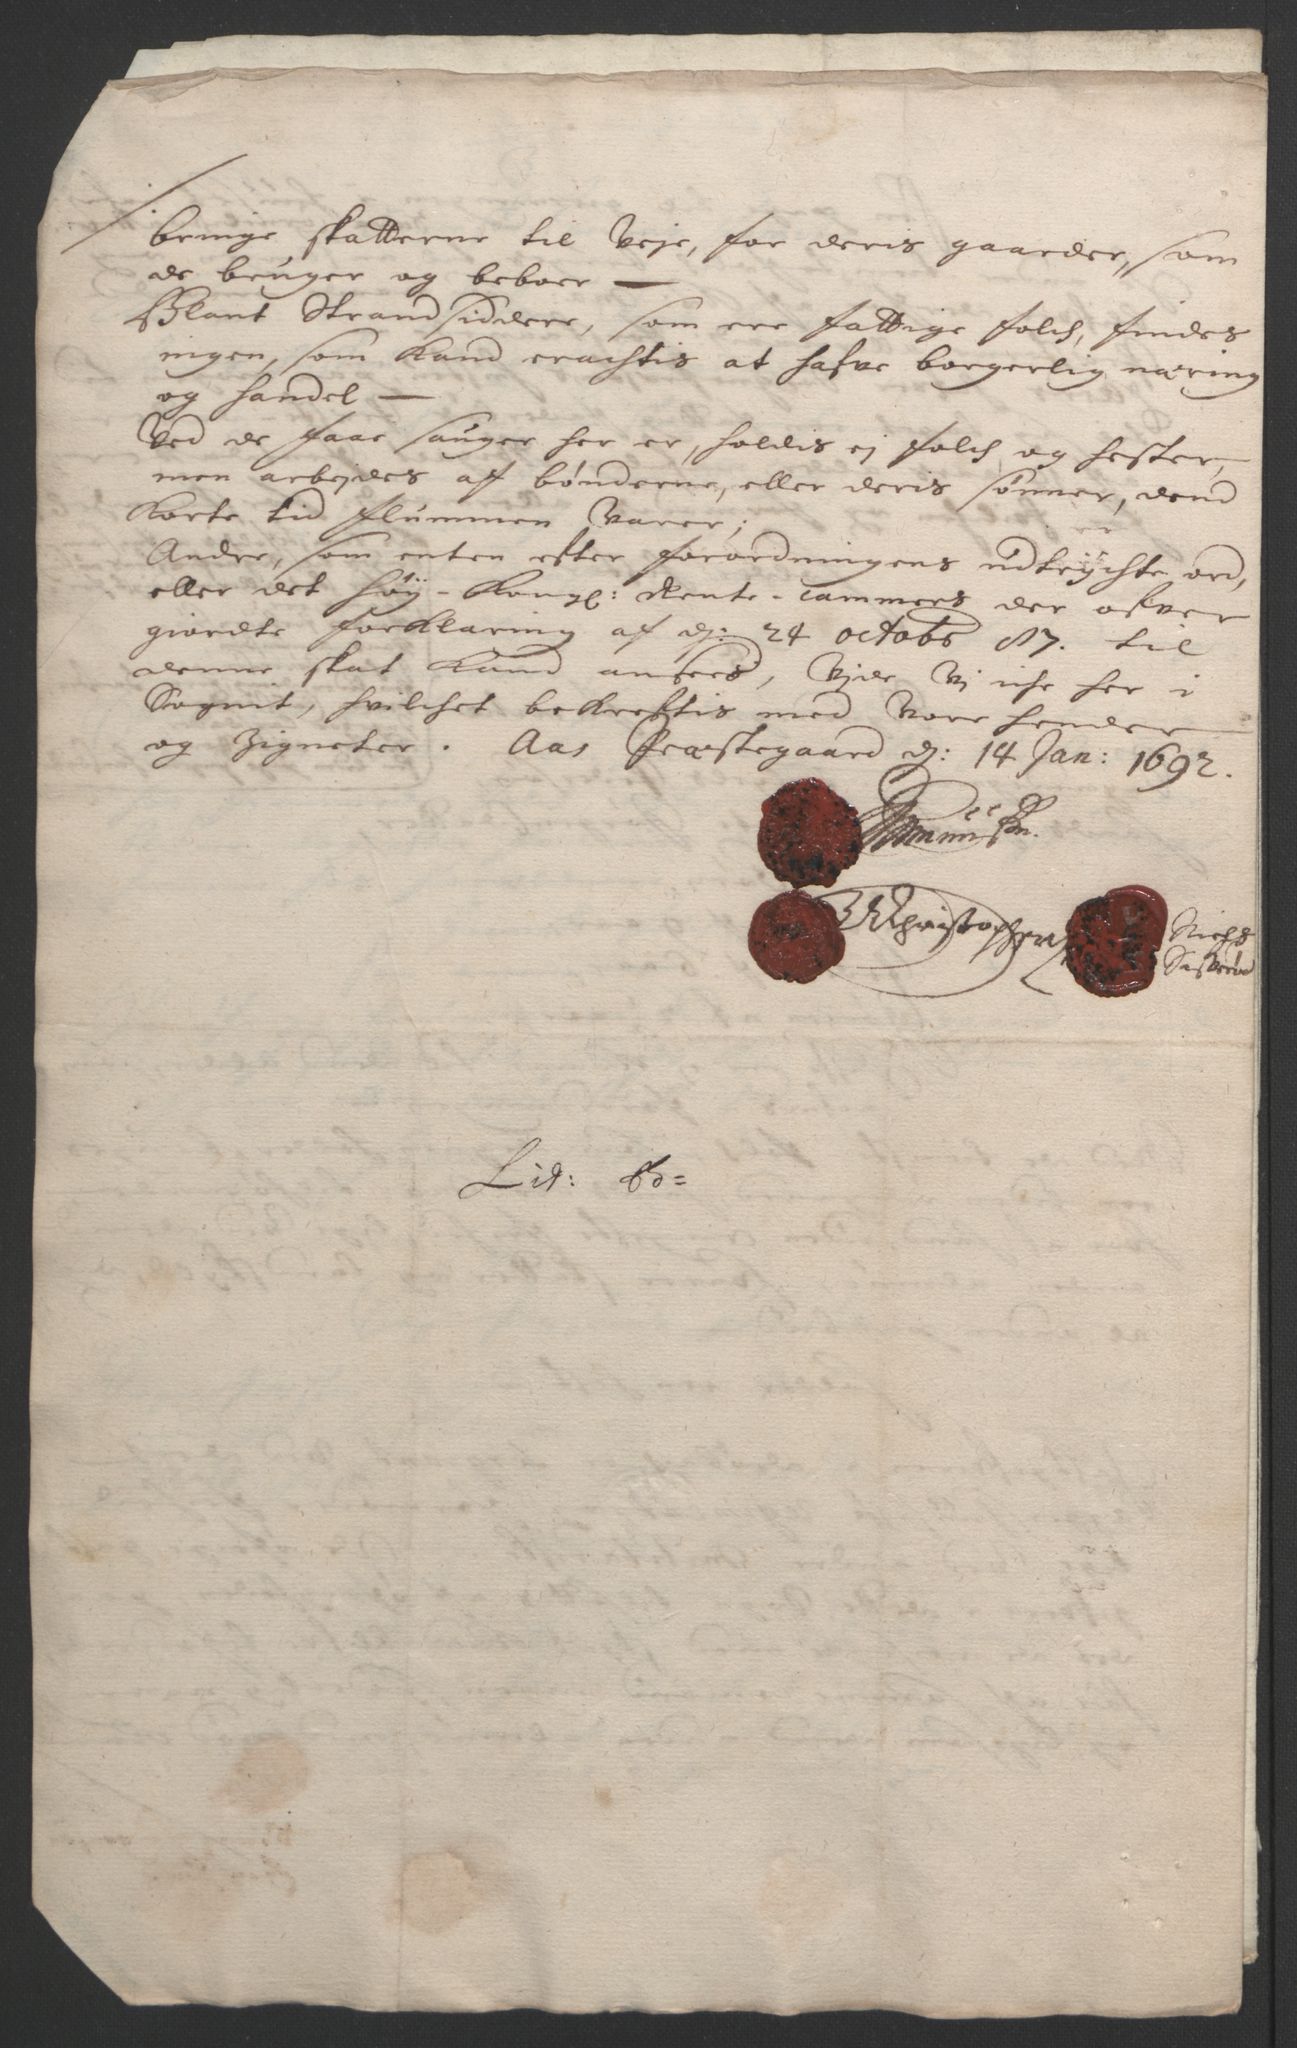 bringe skatterne til veje, for deris gaarder, som
de bruger og beboer —
Blant Strandsiddere, som ere fattige folch, findes
ingen, som kand erachtis at hafve borgerlig næring
og handel —
Ved de faae sauger her er, holdis ej folch og hester,
men arbejdes af bønderne, eller deris sønner, dend
korte tid flummen varer;
Andre, som enten efter forordningens udtrychte ord,
eller det høy-Kongl: Rente-Cammers der ofver
giordte forklaring af dj: 24 octobr 87. til
denne skat kand ansees, vide vj iche her i
Sognit, hvilchet bekreftis med vore hender
og Zigneter. Aas Præstegaard dj: 14 Jan: 1692.
Christophers
Niels
Lit: B=